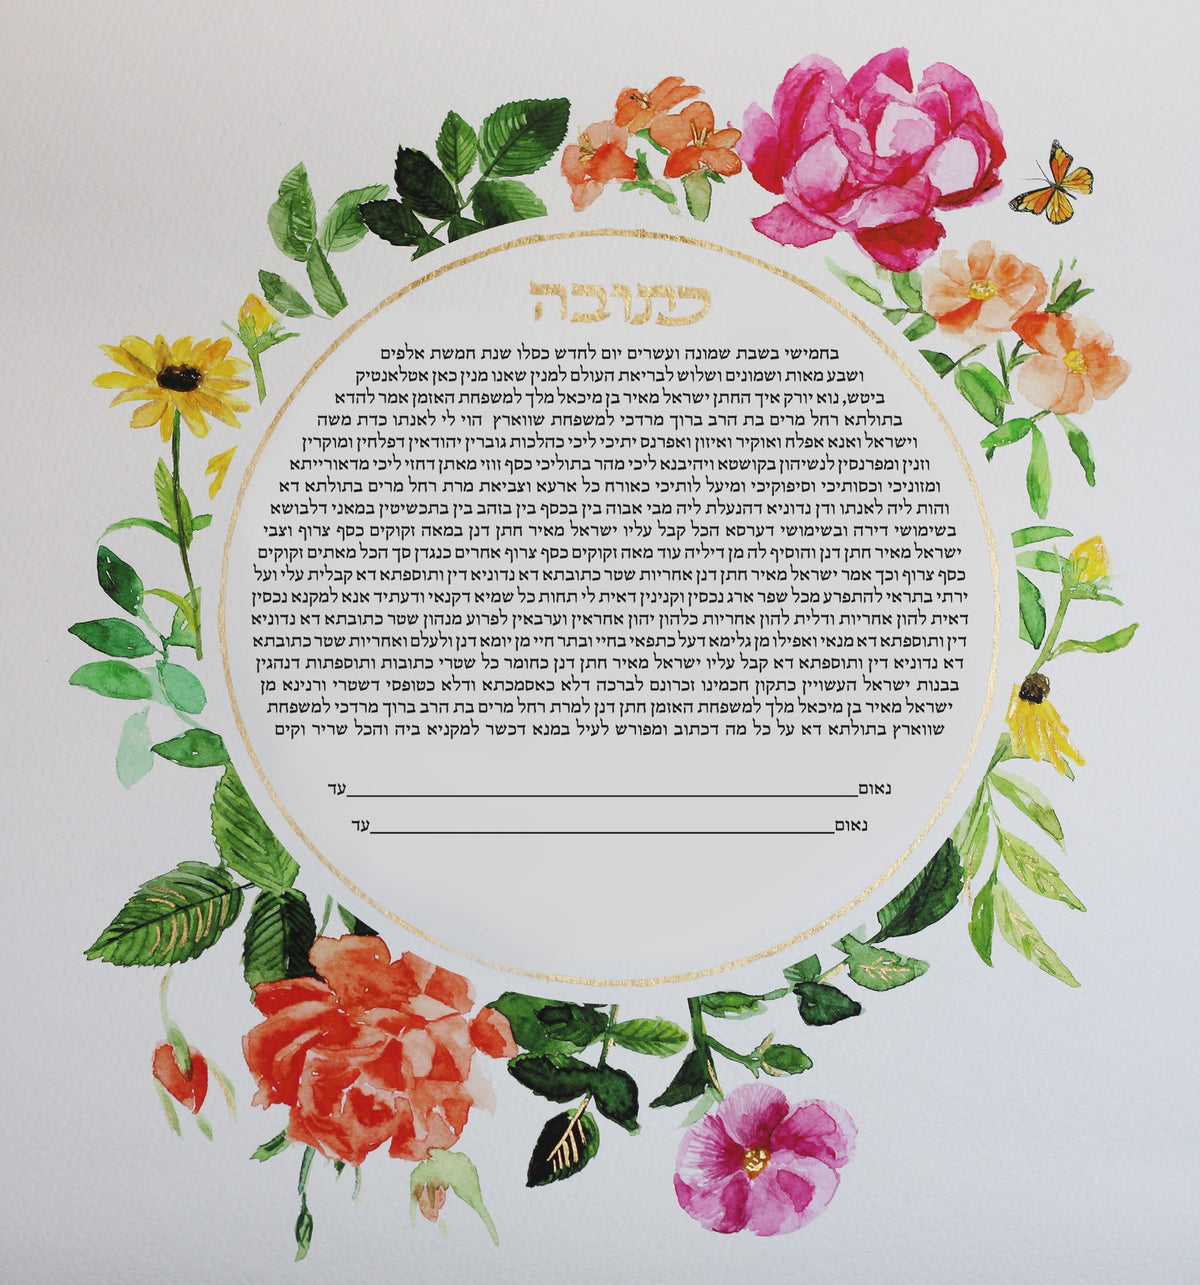 כתובה
בחמישי בשבת שמונה ועשרים יום לחדש כסלו שנת חמשת אלפים
ושבע מאות ושמונים ושלוש לבריאת העולם למנין שאנו מנין כאן אטלאנטיק
ביטש, נוא יורק איך החתן ישראל מאיר בן מיכאל מלך למשפחת האזמן אמר להדא
בתולתא רחל מרים בת הרב ברוך מרדכי למשפחת שווארץ הוי לי לאנתו כדת משה
וישראל ואנא אפלח ואוקיר ואיזון ואפרנס יתיכי ליכי כהלכות גוברין יהודאין דפלחין ומוקרין
וזנין ומפרנסין לנשיהון בקושטא ויהיבנא ליכי מהר בתוליכי כסף זוזי מאתן דחזי ליכי מדאורייתא
ומזוניכי וכסותיכי וסיפוקיכי ומיעל לותיכי כאורח כל ארעא וצביאת מרת רחל מרים בתולתא דא
והות ליה לאנתו ודן נדוניא דהנעלת ליה מבי אבוה בין בכסף בין בזהב בין בתכשיטין במאני דלבושא
בשימושי דירה ובשימושי דערסא הכל קבל עליו ישראל מאיר חתן דנן במאה זקוקים כסף צרוף וצבי
ישראל מאיר חתן דנן והוסיף לה מן דיליה עוד מאה זקוקים כסף צרוף אחרים כנגדן סך הכל מאתים זקוקים
כסף צרוף וכך אמר ישראל מאיר חתן דנן אחריות שטר כתובתא דא נדוניא דין ותוספתא דא קבלית עלי ועל
ירתי בתראי להתפרע מכל שפר ארג נכסין וקנינין דאית לי תחות כל שמיא דקנאי ודעתיד אנא למקנא נכסין
דאית להון אחריות ודלית להון אחריות כלהון יהון אחראין וערבאין לפרוע מנהון שטר כתובתא דא נדוניא
דין ותוספתא דא מנאי ואפילו מן גלימא דעל כתפאי בחיי ובתר חיי מן יומא דנן ולעלם ואחריות שטר כתובתא
דא נדוניא דין ותוספתא דא קבל עליו ישראל מאיר חתן דנן כחומר כל שטרי כתובות ותוספתות דנהגין
בבנות ישראל העשויין כתקון חכמינו זכרונם לברכה דלא כאסמכתא ודלא כטופסי דשטרי ורנינא מן
ישראל מאיר בן מיכאל מלך למשפחת האזמן חתן דנן למרת רחל מרים בת הרב ברוך מרדכי למשפחת
שווארץ בתולתא דא על כל מה דכתוב ומפורש לעיל במנא דכשר למקניא ביה והכל שריר וקים
נאום עד
נאום עד